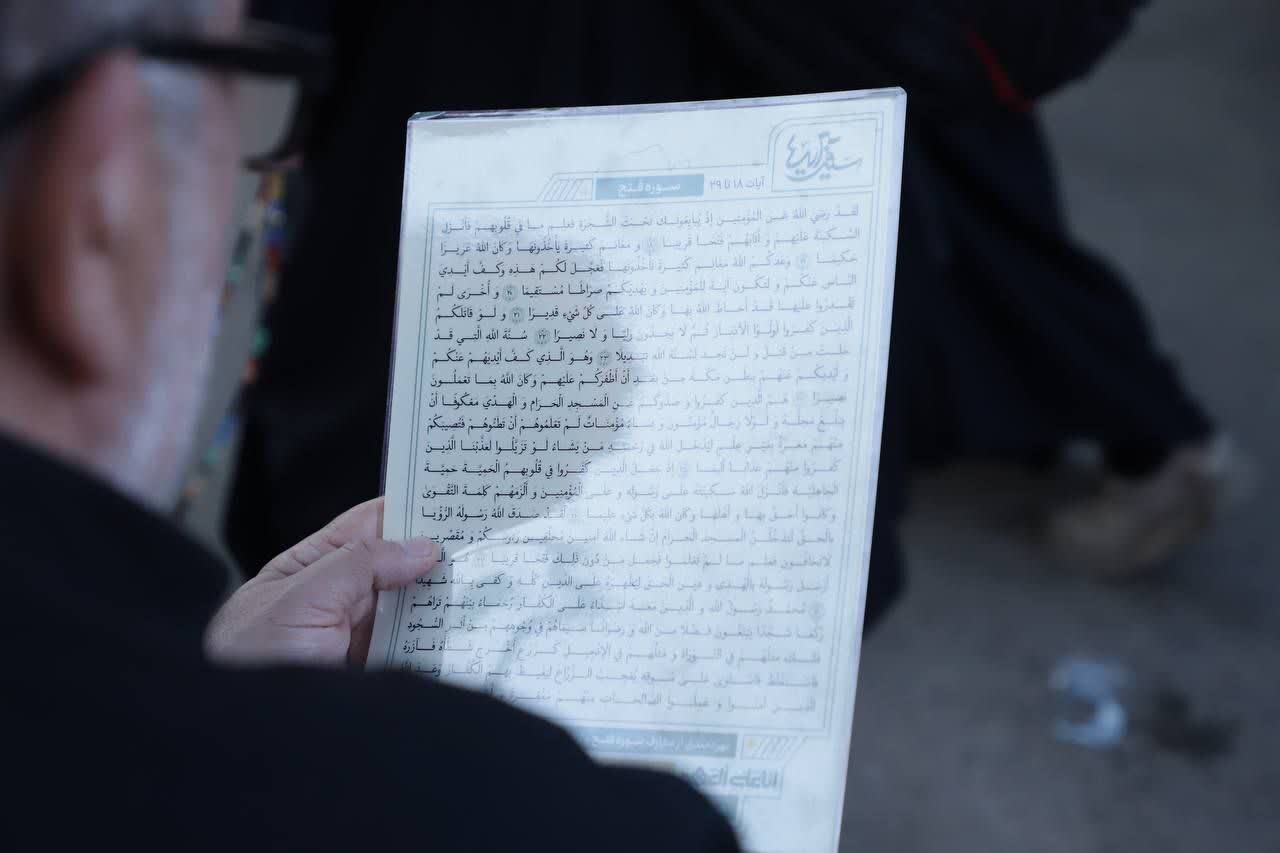 آیات ۱۸ تا ۲۹
سوره فتح
لَقَدْ رَضِيَ اللهُ عَنِ المُؤْمِنِينَ إِذْ يُبَايِعُونَكَ تَحْتَ الشَّجَرَةِ فَعَلِمَ مَا فِي قُلُوبِهِمْ فَأَنْزَلَ
السَّكِينَةَ عَلَيْهِمْ وَ أَثَابَهُمْ فَتْحًا قَرِيبًا ۱۸ وَ مَغَانِمَ كَثِيرَةً يَأْخُذُونَهَا وَكَانَ اللهُ عَزِيزًا
حَكِيمًا ۱۹ وَعَدَكُمُ اللهُ مَغَانِمَ كَثِيرَةً تَأْخُذُونَهَا فَعَجَّلَ لَكُمْ هَذِهِ وَكَفَّ أَيْدِيَ
النَّاسِ عَنْكُمْ وَ لِتَكُونَ آيَةً لِلْمُؤْمِنِينَ وَ يَهْدِيَكُمْ صِرَاطًا مُسْتَقِيمًا ۲۰ وَ أُخْرَى لَمْ
تَقْدِرُوا عَلَيْهَا قَدْ أَحَاطَ اللهُ بِهَا وَكَانَ اللهُ عَلَى كُلِّ شَيْءٍ قَدِيرًا ۲۱ وَ لَوْ قَاتَلَكُمُ
الَّذِينَ كَفَرُوا لَوَلَّوُا الْأَدْبَارَ ثُمَّ لَا يَجِدُونَ وَلِيًّا وَ لَا نَصِيرًا ۲۲ سُنَّةَ اللهِ الَّتِي قَدْ
خَلَتْ مِنْ قَبْلُ وَ لَنْ تَجِدَ لِسُنَّةِ اللهِ تَبْدِيلًا ۲۳ وَهُوَ الَّذِي كَفَّ أَيْدِيَهُمْ عَنْكُمْ
وَ أَيْدِيَكُمْ عَنْهُمْ بِبَطْنِ مَكَّةَ مِنْ بَعْدِ أَنْ أَظْفَرَكُمْ عَلَيْهِمْ وَكَانَ اللهُ بِمَا تَعْمَلُونَ
بَصِيرًا هُمُ الَّذِينَ كَفَرُوا وَ صَدُّوكُمْ عَنِ الْمَسْجِدِ الحَرَامِ وَ الْهَدْيَ مَعْكُوفًا أَنْ
يَبْلُغَ مَحِلَّهُ وَ لَوْلَا رِجَالٌ مُؤْمِنُونَ وَ نِسَاءٌ مُؤْمِنَاتٌ لَمْ تَعْلَمُوهُمْ أَنْ تَطَئُوهُمْ فَتُصِيبَكُمْ
مِنْهُمْ مَعَرَّةٌ بِغَيْرِ عِلْمٍ لِيُدْخِلَ اللهُ فِي رَحْمَتِهِ مَنْ يَشَاءُ لَوْ تَزَيَّلُوا لَعَذَّبْنَا الَّذِينَ
كَفَرُوا مِنْهُمْ عَذَابًا أَلِيمًا إِذْ جَعَلَ الَّذِينَ كَفَرُوا فِي قُلُوبِهِمُ الْحَمِيَّةَ حَمِيَّةَ
الْجَاهِلِيَّةِ فَأَنْزَلَ اللهُ سَكِينَتَهُ عَلَى رَسُولِهِ وَ عَلَى الْمُؤْمِنِينَ وَ أَلْزَمَهُمْ كَلِمَةَ التَّقْوَى
وَكَانُوا أَحَقَّ بِهَا وَ أَهْلَهَا وَكَانَ اللهُ بِكُلِّ شَيْءٍ عَلِيمًا لَقَدْ صَدَقَ اللهُ رَسُولَهُ الرُّؤْيَا
بِالْحَقِّ لَتَدْخُلُنَّ الْمَسْجِدَ الْحَرَامَ إِنْ شَاءَ اللهُ آمِنِينَ مُحَلِّقِينَ رُءُوسَكُمْ وَ مُقَصِّرِينَ
لَا تَخَافُونَ فَعَلِمَ مَا لَمْ تَعْلَمُوا فَجَعَلَ مِنْ دُونِ ذَلِكَ فَتْحًا قَرِيبًا
أَرْسَلَ رَسُولَهُ بِالْهُدَى وَ دِينِ الْحَقِّ لِيُظْهِرَهُ عَلَى الدِّينِ كُلِّهِ وَ كَفَى بِاللهِ شَهِيدًا
مُحَمَّدٌ رَسُولُ اللهِ وَ الَّذِينَ مَعَهُ أَشِدَّاءُ عَلَى الْكُفَّارِ رُحَمَاءُ بَيْنَهُمْ تَرَاهُمْ
رُكَّعًا سُجَّدًا يَبْتَغُونَ فَضْلًا مِنَ اللهِ وَ رِضْوَانًا سِيمَاهُمْ فِي وُجُوهِهِمْ مِنْ أَثَرِ السُّجُودِ
ذَلِكَ مَثَلُهُمْ فِي التَّوْرَاةِ وَ مَثَلُهُمْ فِي الْإِنْجِيلِ كَزَرْعٍ أَخْرَجَ شَطْأَهُ فَآزَرَهُ
فَاسْتَغْلَظَ فَاسْتَوَى عَلَى سُوقِهِ يُعْجِبُ الزُّرَّاعَ لِيَغِيظَ بِهِمُ الْكُفَّارَ وَعَدَ اللهُ
الَّذِينَ آمَنُوا وَ عَمِلُوا الصَّالِحَاتِ مِنْهُمْ مَغْفِرَةً
سوره فتح